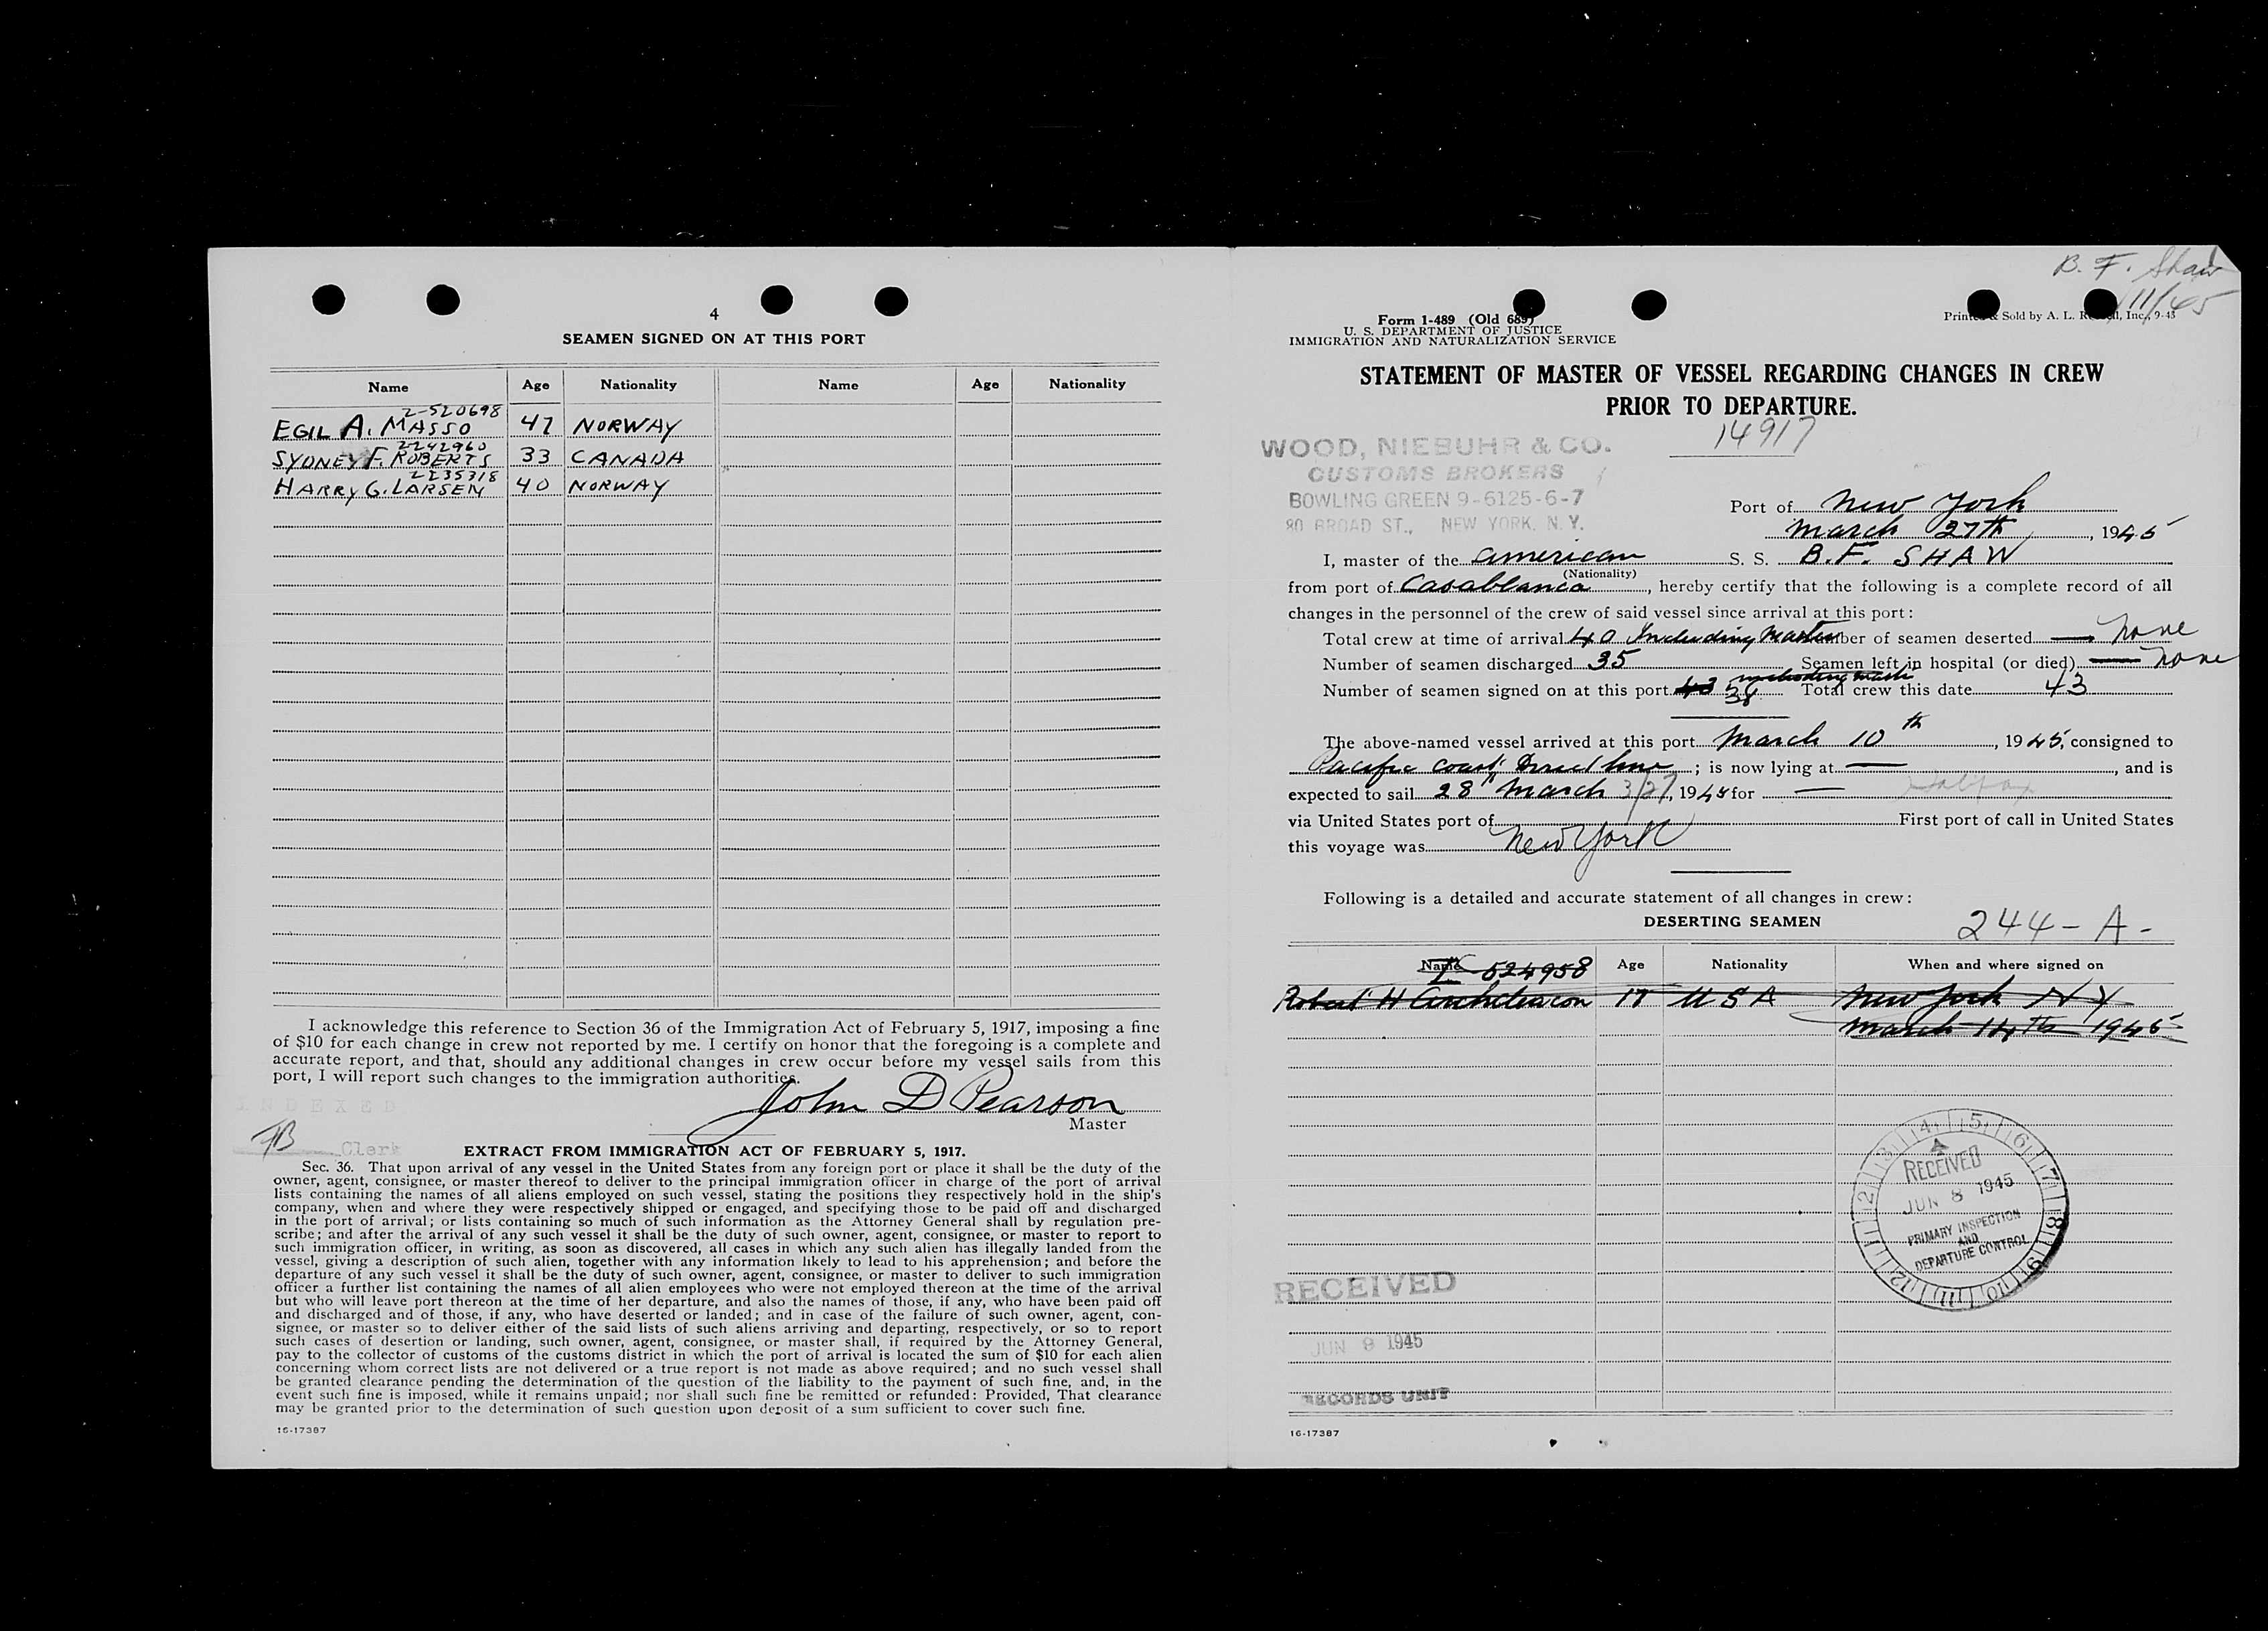 4
SEAMEN SIGNED ON AT THIS PORT
Name Age Nationality Name Age Nationality
Z-520698
EGIL A. MASSO 47 NORWAY
Z242960
SYDNEY F. ROBERTS 33 CANADA
Z235318
HARRY G. LARSEN 40 NORWAY
I acknowledge this reference to Section 36 of the Immigration Act of February 5, 1917, imposing a fine
of $10 for each change in crew not reported by me. I certify on honor that the foregoing is a complete and
accurate report, and that, should any additional changes in crew occur before my vessel sails from this
port, I will report such changes to the immigration authorities.
INDEXED
John D Pearson
Master
Clerk
EXTRACT FROM IMMIGRATION ACT OF FEBRUARY 5, 1917.
Sec. 36. That upon arrival of any vessel in the United States from any foreign port or place it shall be the duty of the
owner, agent, consignee, or master thereof to deliver to the principal immigration officer in charge of the port of arrival
lists containing the names of all aliens employed on such vessel, stating the positions they respectively hold in the ship's
company, when and where they were respectively shipped or engaged, and specifying those to be paid off and discharged
in the port of arrival; or lists containing so much of such information as the Attorney General shall by regulation pre-
scribe; and after the arrival of any such vessel it shall be the duty of such owner, agent, consignee, or master to report to
such immigration officer, in writing, as soon as discovered, all cases in which any such alien has illegally landed from the
vessel, giving a description of such alien, together with any information likely to lead to his apprehension; and before the
departure of any such vessel it shall be the duty of such owner, agent, consignee, or master to deliver to such immigration
officer a further list containing the names of all alien employees who were not employed thereon at the time of the arrival
but who will leave port thereon at the time of her departure, and also the names of those, if any, who have been paid off
and discharged and of those, if any, who have deserted or landed; and in case of the failure of such owner, agent, con-
signee, or master so to deliver either of the said lists of such aliens arriving and departing, respectively, or so to report
such cases of desertion or landing, such owner, agent, consignee, or master shall, if required by the Attorney General,
pay to the collector of customs of the customs district in which the port of arrival is located the sum of $10 for each alien
concerning whom correct lists are not delivered or a true report is not made as above required; and no such vessel shall
be granted clearance pending the determination of the question of the liability to the payment of such fine, and, in the
event such fine is imposed, while it remains unpaid; nor shall such fine be remitted or refunded: Provided, That clearance
may be granted prior to the determination of such question upon deposit of a sum sufficient to cover such fine.
16-17387
B. F. Shaw
11/45
Form 1-489 (Old 689)
U. S. DEPARTMENT OF JUSTICE
IMMIGRATION AND NATURALIZATION SERVICE
Printed & Sold by A. L. Inc., 9-43
STATEMENT OF MASTER OF VESSEL REGARDING CHANGES IN CREW
PRIOR TO DEPARTURE.
14917
WOOD, NIEBUHR & CO.
CUSTOMS BROKERS
BOWLING GREEN 9-6125-6-7
80 BROAD ST., NEW YORK, N. Y.
Port of New York
March 27th, 1945
I, master of the American S. S. B.F. SHAW
(Nationality)
from port of Casablanca, hereby certify that the following is a complete record of all
changes in the personnel of the crew of said vessel since arrival at this port:
Total crew at time of arrival 40 Including Master Number of seamen deserted — none
Number of seamen discharged 35 Seamen left in hospital (or died) — none
including master
Number of seamen signed on at this port 43 38 Total crew this date 43
The above-named vessel arrived at this port March 10th, 1945, consigned to
Pacific Coast Direct Line; is now lying at —, and is
expected to sail 28" March 3/27, 1945 for — Halifax
via United States port of First port of call in United States
this voyage was New York
Following is a detailed and accurate statement of all changes in crew:
DESERTING SEAMEN
244-A-
Name Age Nationality When and where signed on
Z 524958
Robert H Archdeacon 17 USA New York N Y
March 14th 1945
RECEIVED
JUN 8 1945
PRIMARY INSPECTION
AND
DEPARTURE CONTROL
1 2 3 4 5 6 7 8 9 10 11 12
RECEIVED
JUN 9 1945
RECORDS UNIT
16-17387